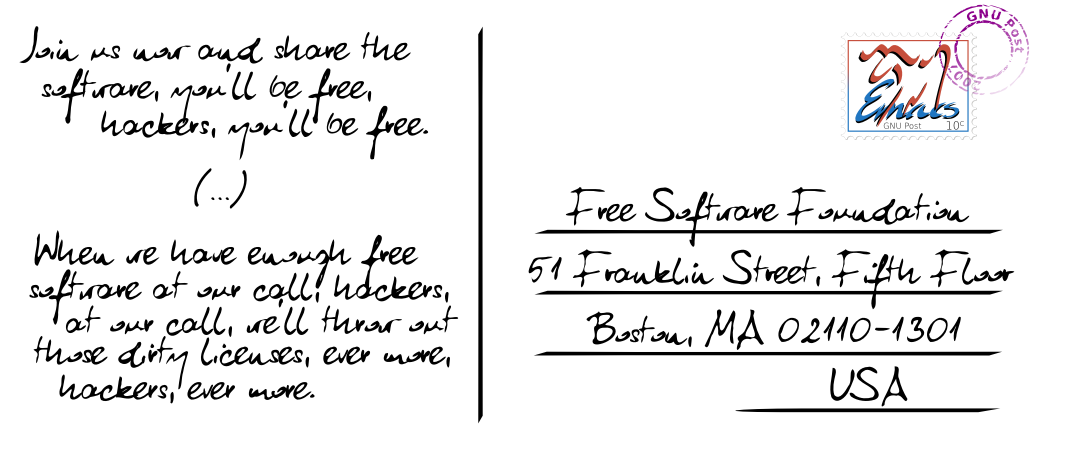 Join us now and share the
software, you'll be free,
hackers, you'll be free.
(...)
When we have enough free
software at our call, hackers,
at our call, we'll throw out
those dirty licenses, ever more,
hackers, ever more.
GNU Post
Emacs
GNU Post 10c
Free Software Foundation
51 Franklin Street, Fifth Floor
Boston, MA 02110-1301
USA